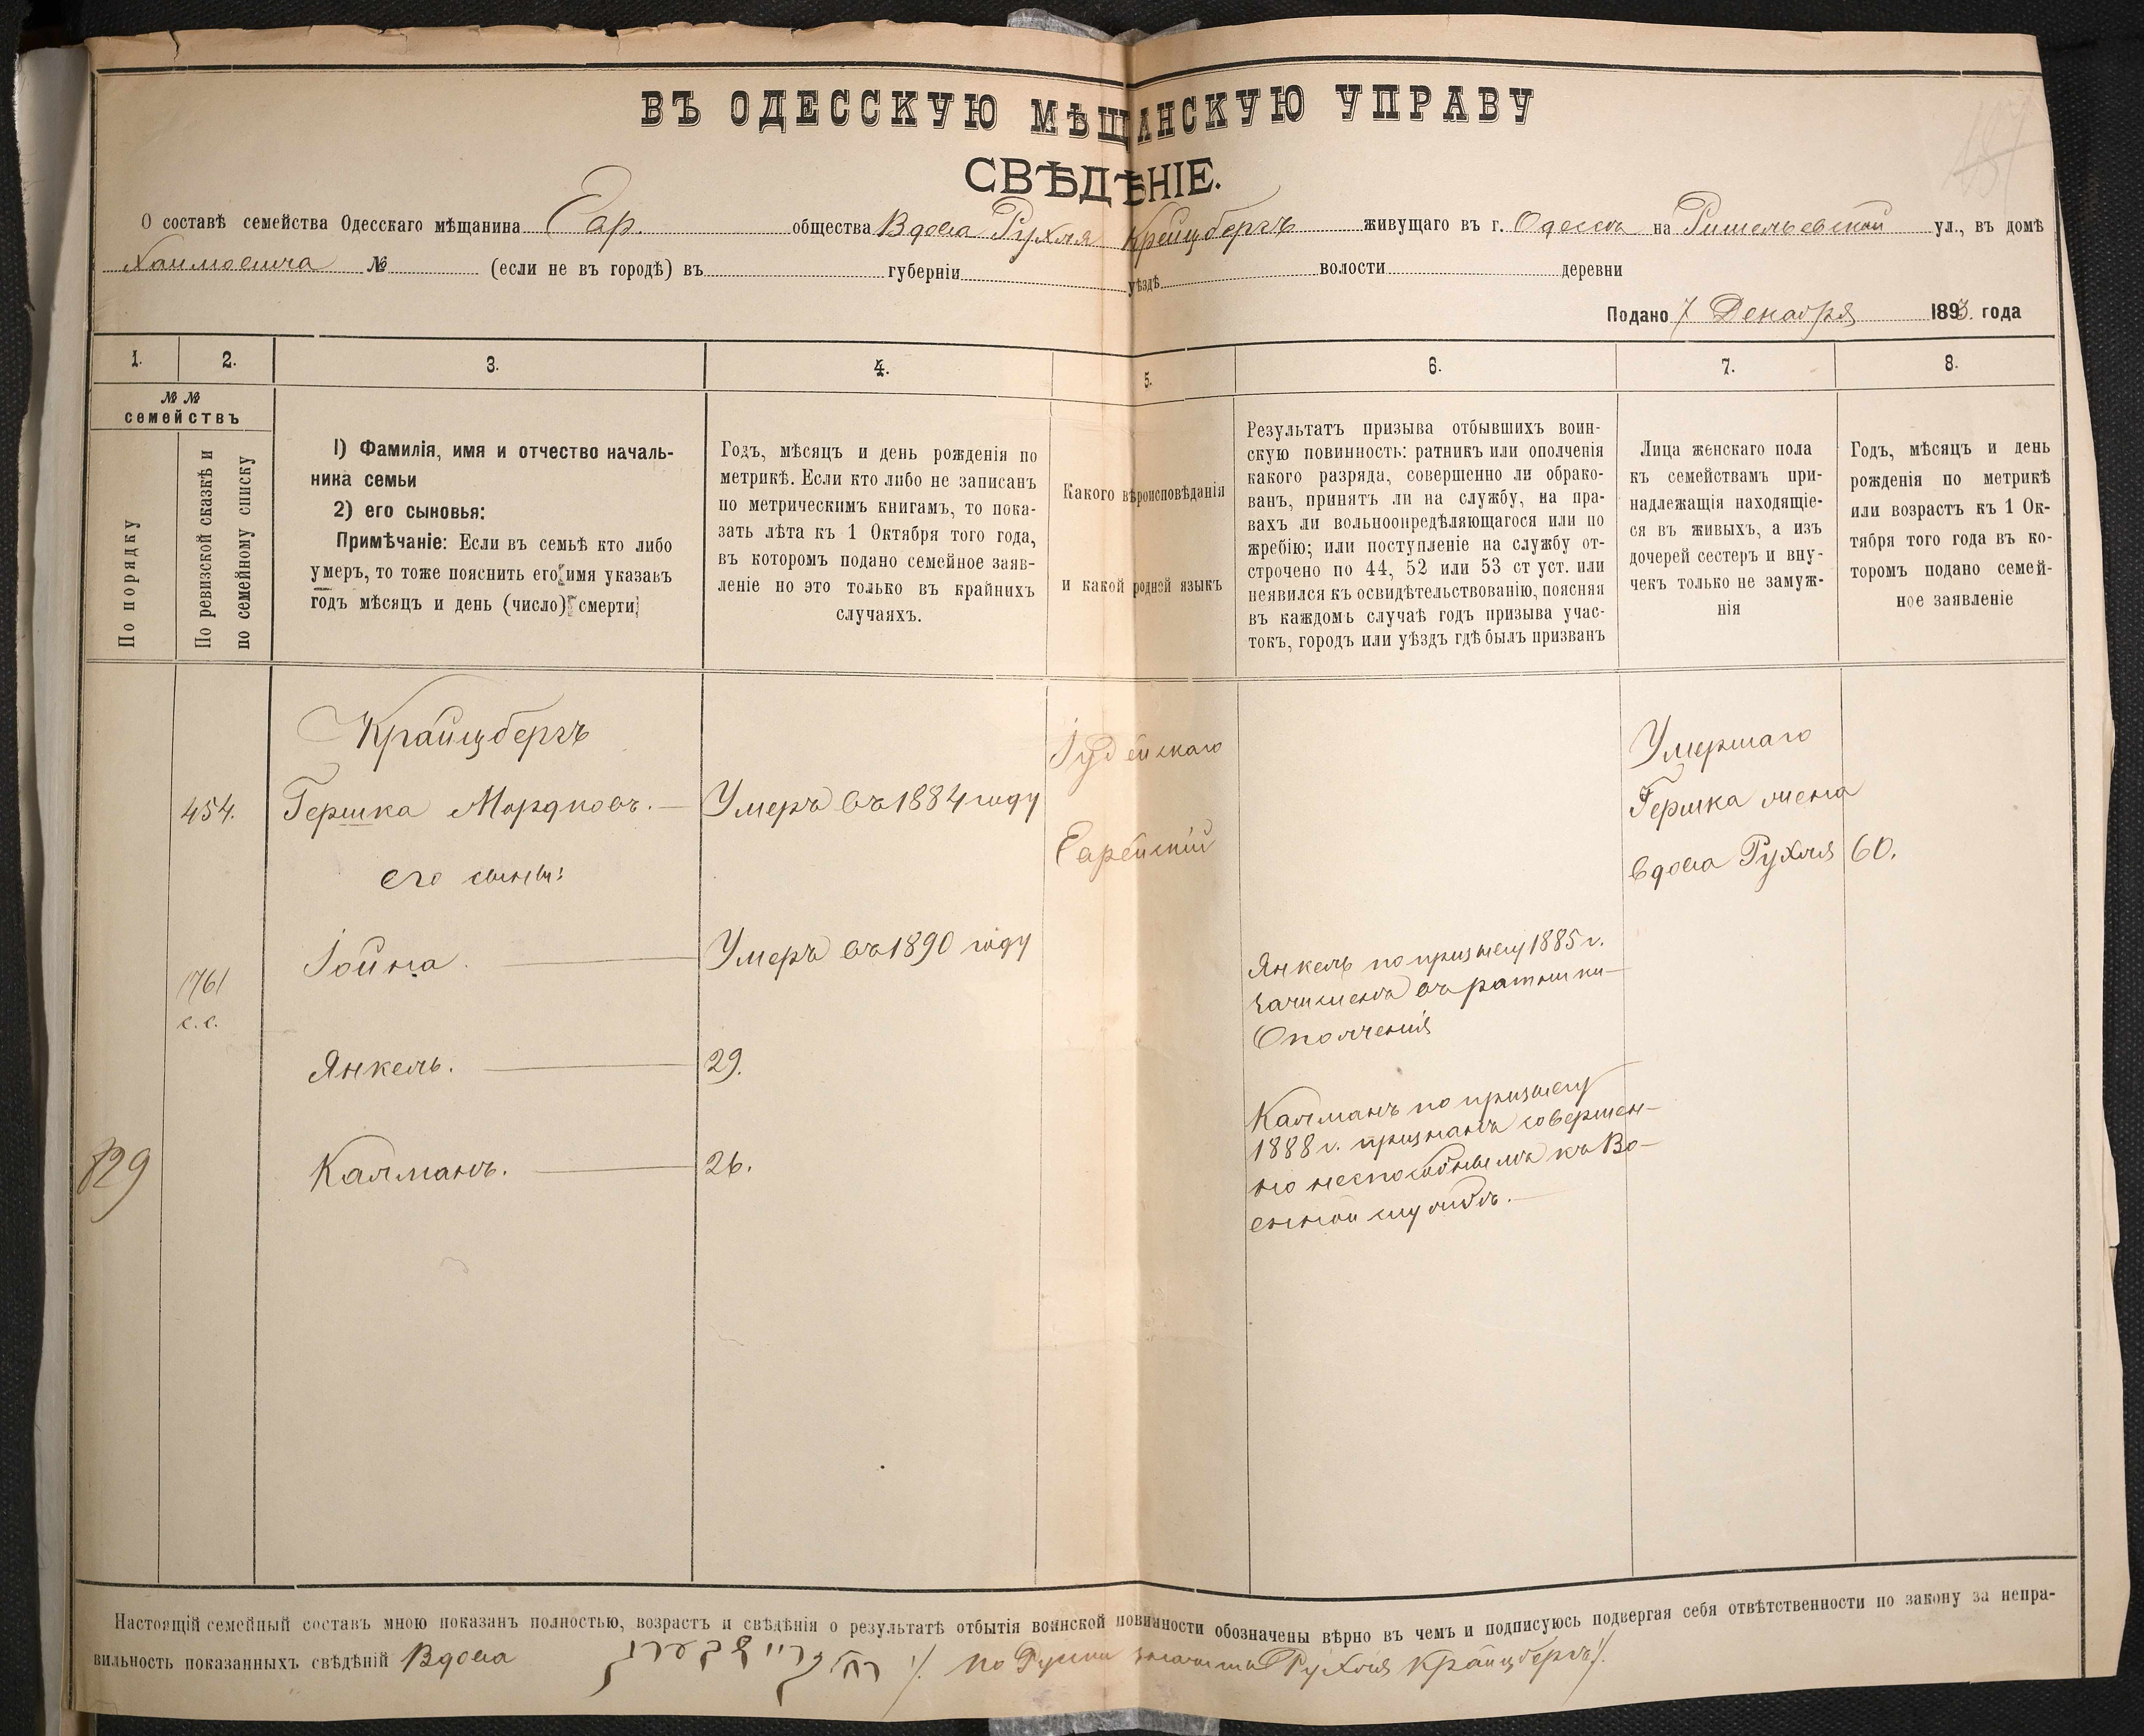 ВЪ ОДЕССКУЮ МѢЩАНСКУЮ УПРАВУ
СВѢДѢНІЕ.
О составѣ семейства Одесскаго мѣщанина Евр. общества Вдова Рухля Крейцбергъ живущаго въ г. Одессѣ на Ришельевской ул., въ домѣ
Хаимовича № (если не въ городѣ) въ губерніи уѣздѣ волости деревни
Подано 7 Декабря 1893. года
1. 2. 3. 4. 5. 6. 7. 8.
№ №
семействъ
По порядку
По ревизской сказкѣ и
по семейному списку
1) Фамилія, имя и отчество началь-
ника семьи
2) его сыновья:
Примѣчаніе: Если въ семьѣ кто либо
умеръ, то тоже пояснить его имя указавъ
годъ мѣсяцъ и день (число) смерти;
Годъ, мѣсяцъ и день рожденія по
метрикѣ. Если кто либо не записанъ
по метрическимъ книгамъ, то пока-
зать лѣта къ 1 Октября того года,
въ которомъ подано семейное заяв-
леніе но это только въ крайнихъ
случаяхъ.
Какого вѣроисповѣданія
и какой родной языкъ
Результатъ призыва отбывшихъ воин-
скую повинность: ратникъ или ополченія
какого разряда, совершенно ли обрако-
ванъ, принятъ ли на службу, на пра-
вахъ ли вольноопредѣляющагося или по
жребію; или поступленіе на службу от-
строчено по 44, 52 или 53 ст уст. или
неявился къ освидѣтельствованію, поясняя
въ каждомъ случаѣ годъ призыва учас-
токъ, городъ или уѣздъ гдѣ былъ призванъ
Лица женскаго пола
къ семействамъ при-
надлежащія находящіе-
ся въ живыхъ, а изъ
дочерей сестеръ и вну-
чекъ только не замуж-
нія
Годъ, мѣсяцъ и день
рожденія по метрикѣ
или возрастъ къ 1 Ок-
тября того года въ ко-
торомъ подано семей-
ное заявленіе
Крайцбергъ
454. Гершка Мордковъ. — Умеръ въ 1884 году
его сыны:
Іойна. — Умеръ въ 1890 году
1761
с. с.
Янкель. — 29.
829
Калманъ. — 26.
Іудейскаго
Еврейскій
Янкель по призыву 1885 г.
зачисленъ въ ратники
Ополченія
Калманъ по призыву
1888 г. признанъ совершен-
но неспособнымъ къ Во-
енной службѣ.
Умершаго
Гершка жена
вдова Рухля 60.
Настоящій семейный составъ мною показанъ полностью, возрастъ и свѣдѣнія о результатѣ отбытія воинской повинности обозначены вѣрно въ чемъ и подписуюсь подвергая себя отвѣтственности по закону за непра-
вильность показанныхъ свѣдѣній Вдова /. по Русски Рухля Крайцбергъ /.